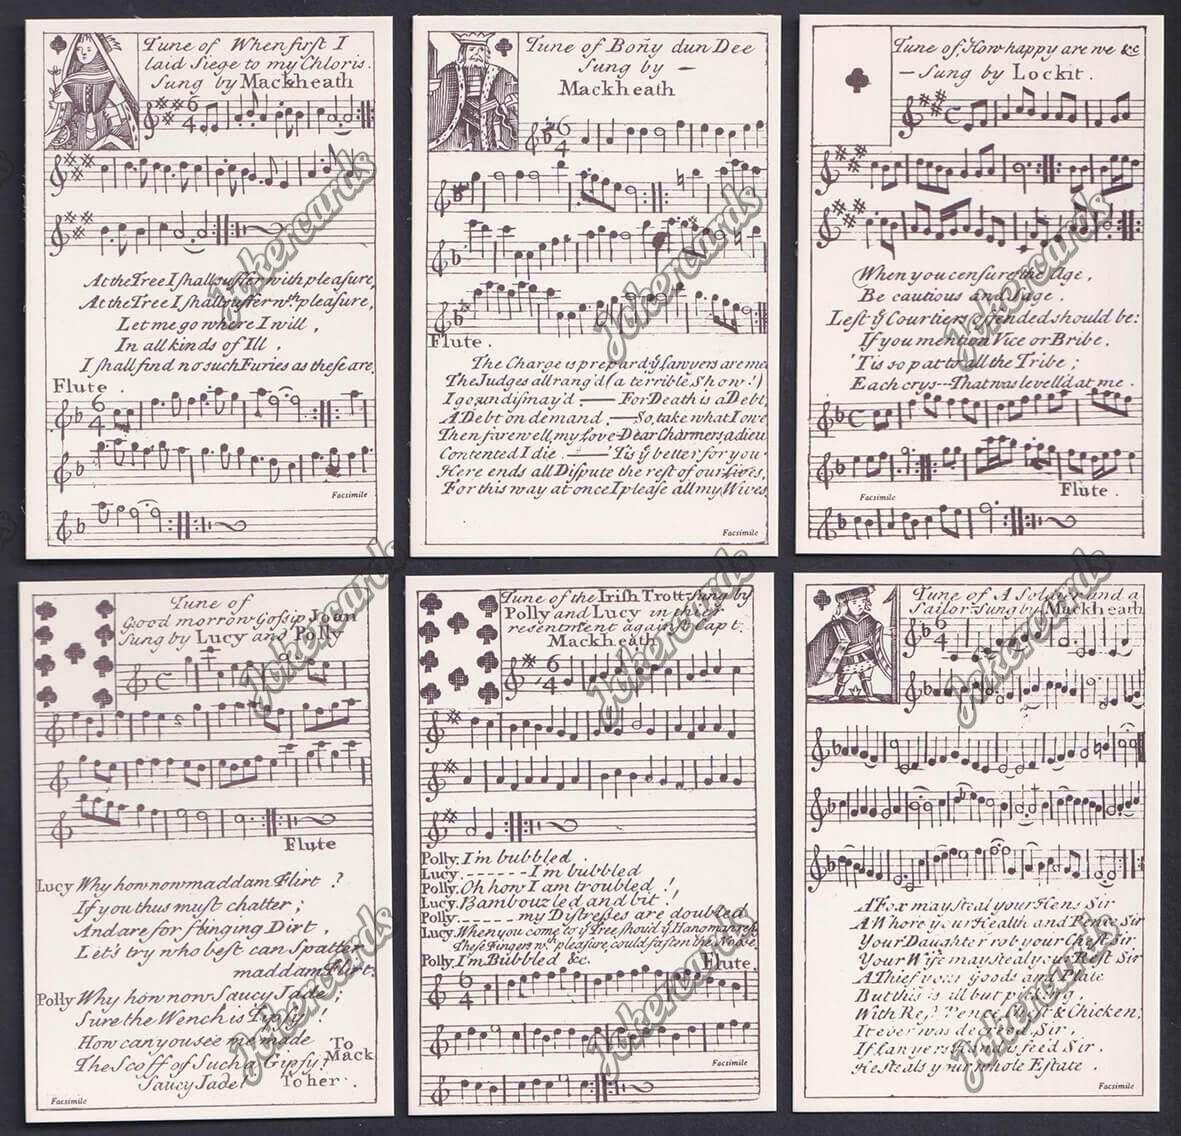 Tune of When first I
laid Siege to my Chloris.
Sung by Mackheath
At the Tree I shall suffer with pleasure,
At the Tree I shall suffer wth pleasure,
Let me go where I will,
In all kinds of Ill,
I shall find no such Furies as these are.
Flute.
Facsimile
Tune of Bon̄y dun Dee
Sung by —
Mackheath
Flute.
The Charge is prepar'd ẏ Lawyers are met
The Judges all rang'd (a terrible Show!)
I go undismay'd — For Death is a Debt,
A Debt on demand. — So, take what I owe
Then farewell my Love - Dear Charmers adieu
Contented I die. — 'Tis ẏ better for you
Here ends all Dispute the rest of our Lives,
For this way at once I please all my Wives.
Facsimile
Tune of How happy are we &c
— Sung by Lockit.
When you censure the Age,
Be cautious and Sage.
Lest ẏ Courtiers offended should be:
If you mention Vice or Bribe,
'Tis so pat to all the Tribe;
Each crys -- That was levell'd at me.
Facsimile
Flute.
Tune of
Good morrow Gossip Joan
Sung by Lucy and Polly
Flute
Lucy Why how now maddam Flirt?
If you thus must chatter;
And are for flinging Dirt,
Let's try who best can Spatter
maddam Flirt.
Polly Why how now Saucy Jade;
Sure the Wench is Tipsy!
How can you see me made To
The Scoff of such a Gipsy? Mack
Saucy Jade! To her.
Facsimile
Tune of the Irish Trott Sung by
Polly and Lucy in their
resentment against Capt.
Mackheath
Polly. I'm bubbled.
Lucy. ------ I'm bubbled
Polly. Oh how I am troubled!
Lucy. Bambouzled and bit!
Polly. ----- my Distresses are doubled
Lucy. When you come to ẏ Tree shou'd ẏ Hangman refuse
These Fingers wth pleasure could fasten the Noose.
Polly. I'm Bubbled &c.
Flute.
Facsimile
Tune of A Soldier and a
Sailor Sung by Mackheath
A Fox may steal your Hens Sir
A Whore your Health and Pence Sir
Your Daughter rob your Chest Sir
Your Wife may steal your Rest Sir
A Thief your goods and Plate
But this is all but picking,
With Rest Pence, Chest & Chicken;
It ever was decreed, Sir,
If Lawyers Hand is feed Sir.
He steals your whole Estate.
Facsimile
Jokercards
Jokercards
Jokercards
Jokercards
Jokercards
Jokercards
Jokercards
Jokercards
Jokercards